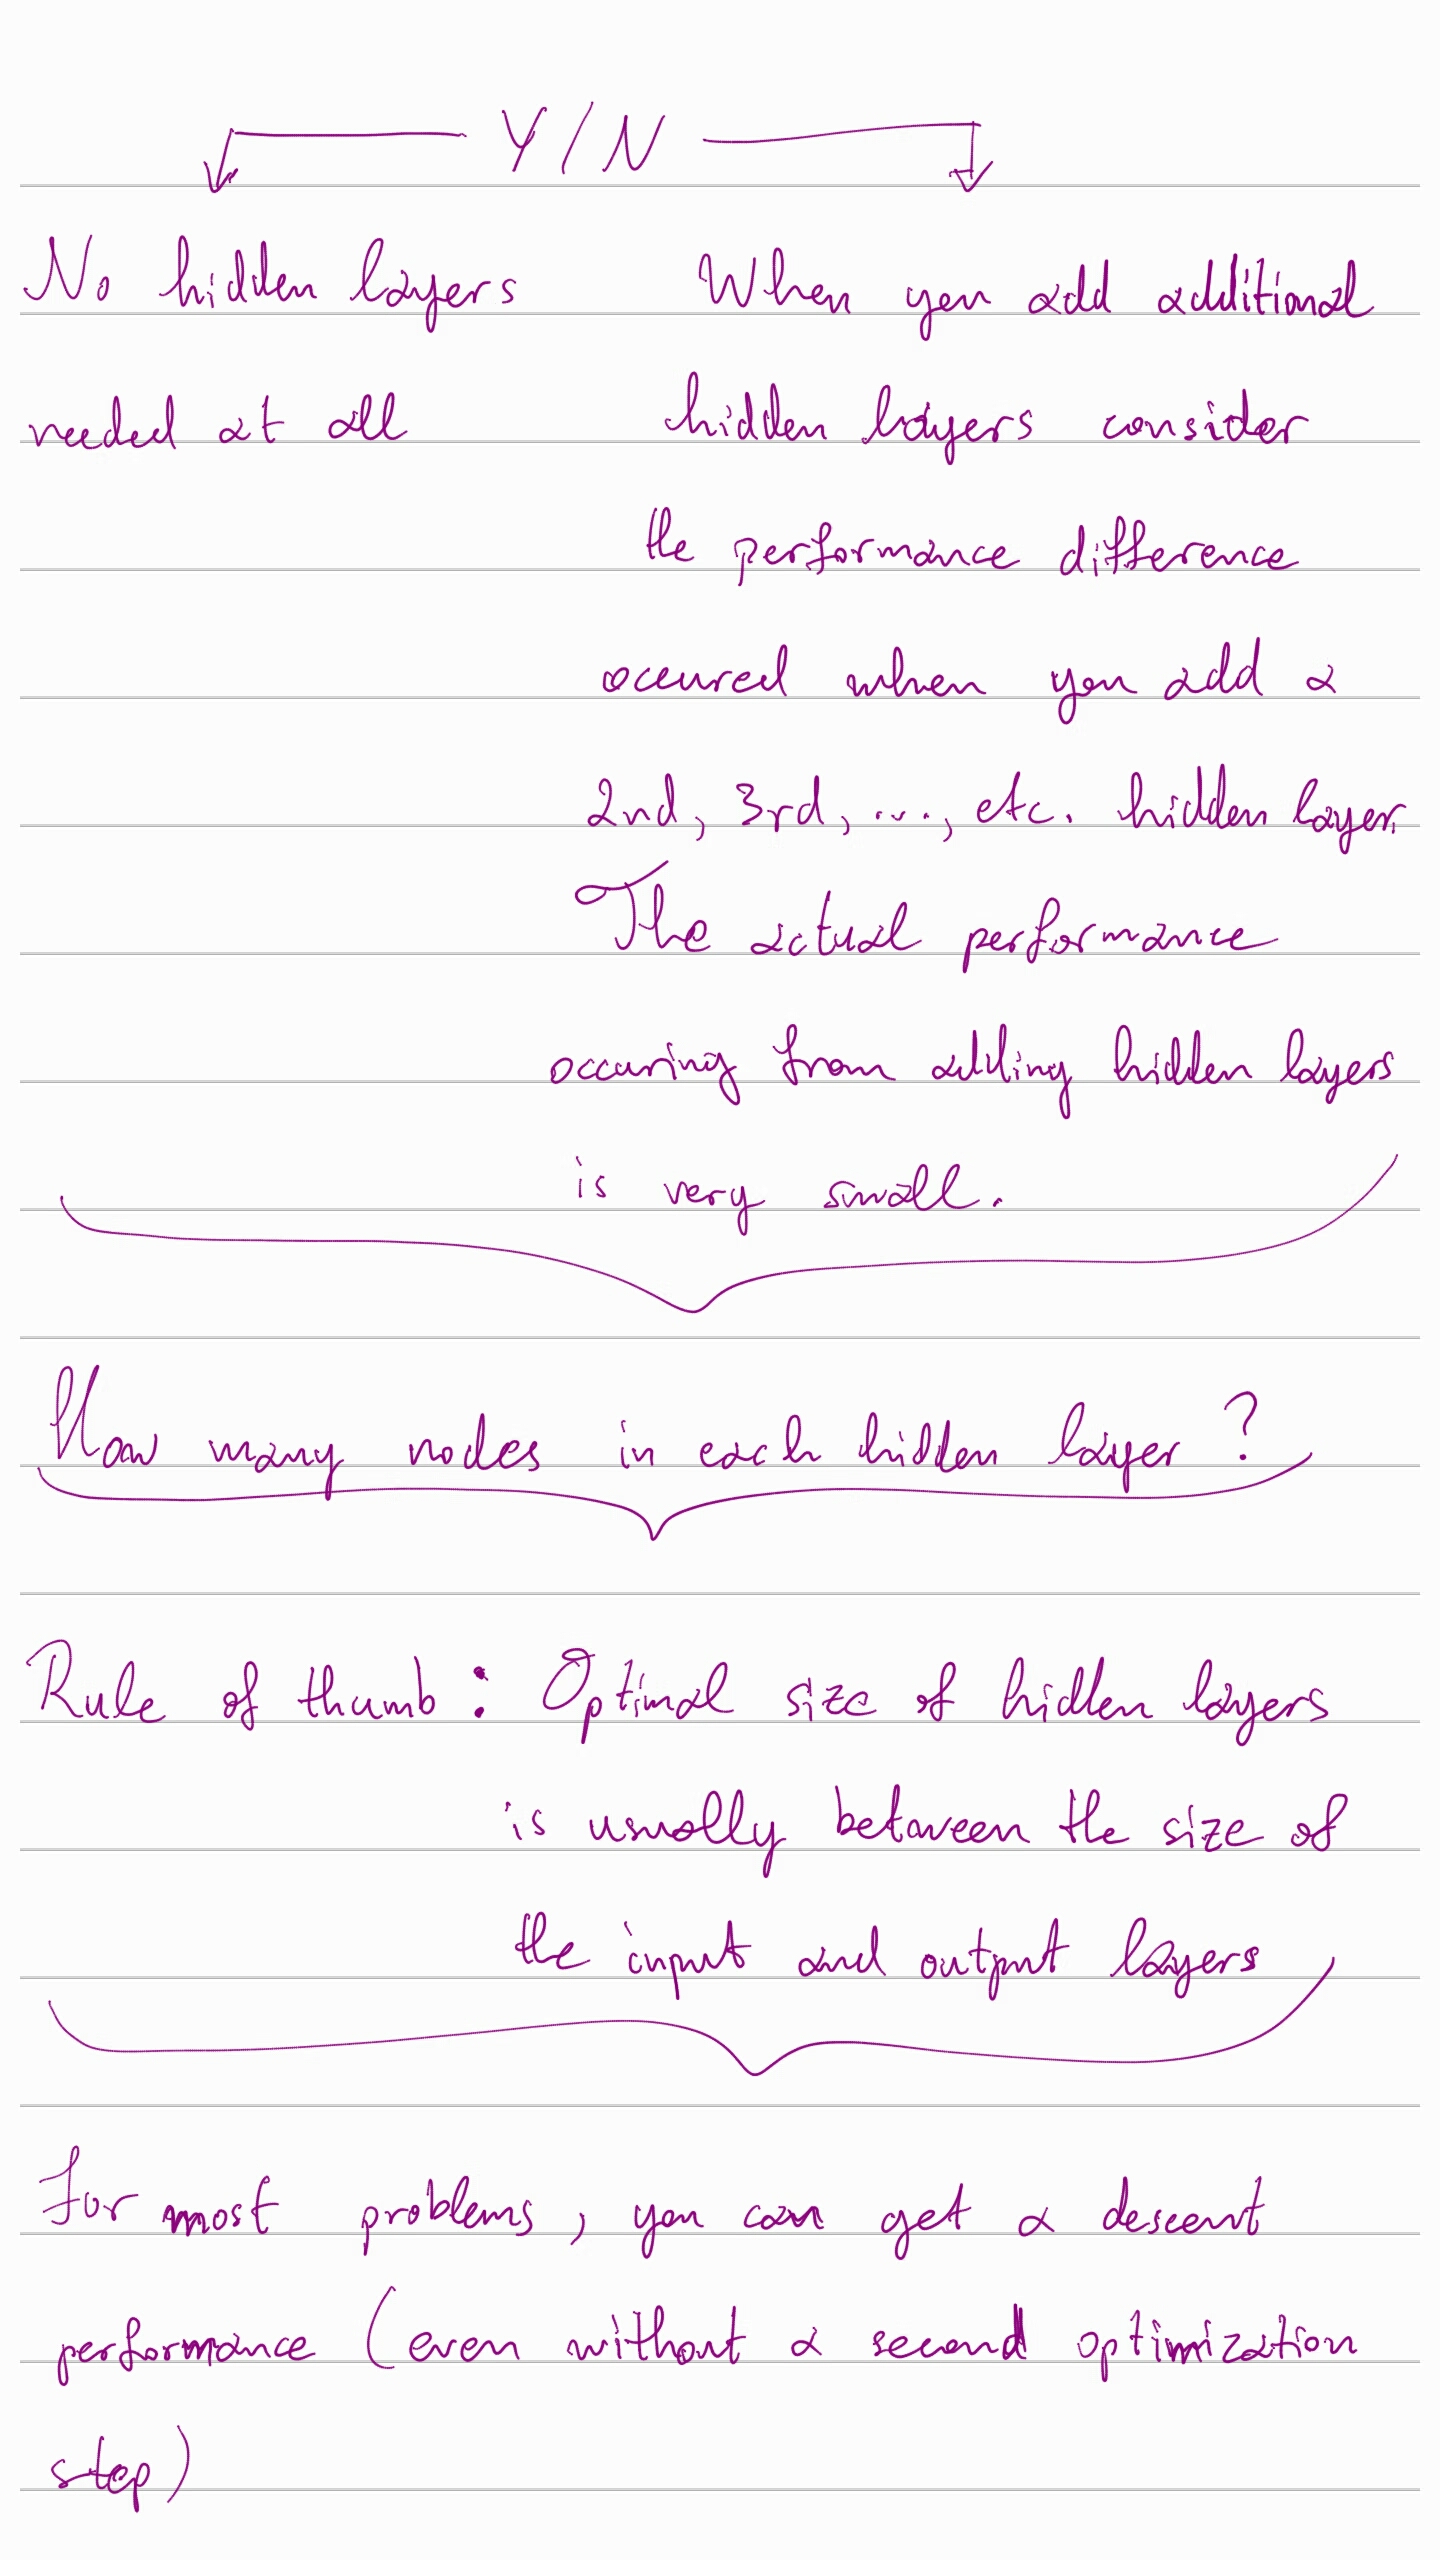 Y/N
No hidden layers When you add additional
needed at all hidden layers consider
the performance difference
occured when you add a
2nd, 3rd, ..., etc. hidden layer.
The actual performance
occuring from adding hidden layers
is very small.
How many nodes in each hidden layer?
Rule of thumb: Optimal size of hidden layers
is usually between the size of
the input and output layers
For most problems, you can get a descent
performance (even without a second optimization
step)